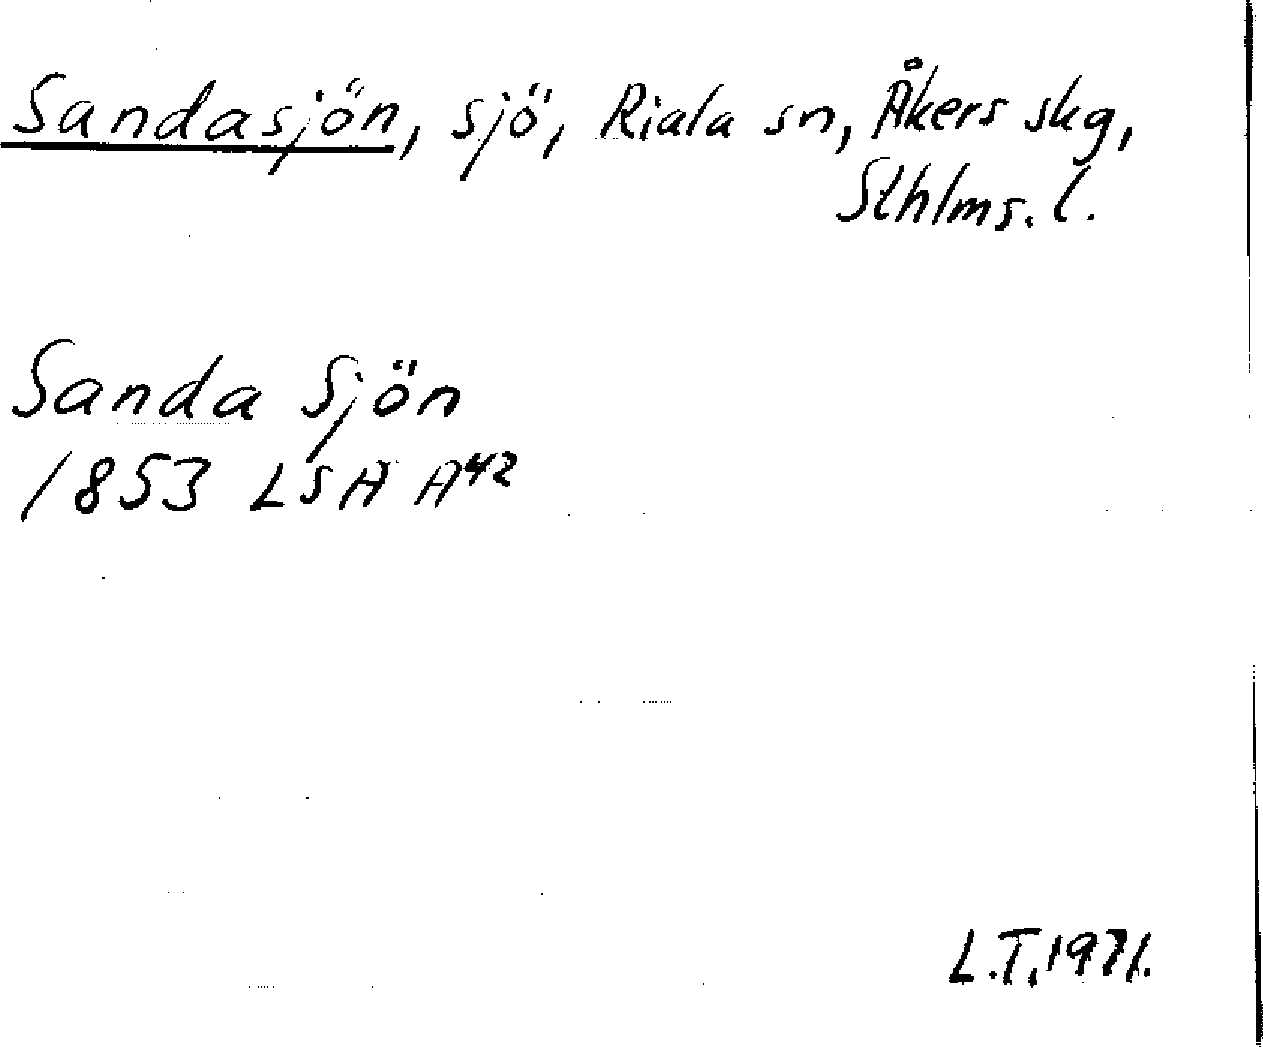 Sandasjön, sjö, Riala sn, Åkers skg,
Sthlms. l.
Sanda Sjön
1853 LSA A42
L.T. 1971.